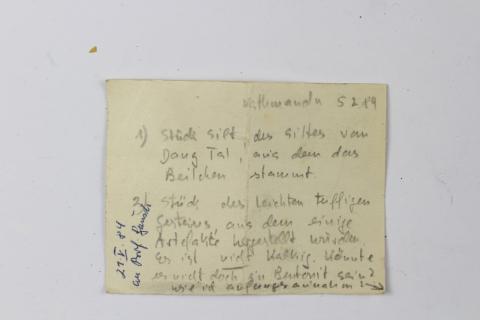 Kathmandu 5 2 84
1) Stück Silt, des Siltes vom
Dang Tal, aus dem das
Beilchen stammt.
2) Stück des leichten tuffigen
Gesteins aus dem einige
Artefakte hergestellt wurden
Es ist nicht kalkig. Könnte
es nicht doch ein Bentonit sein?
wie ich anfangs annahm?
21 V. 84
an Prof.